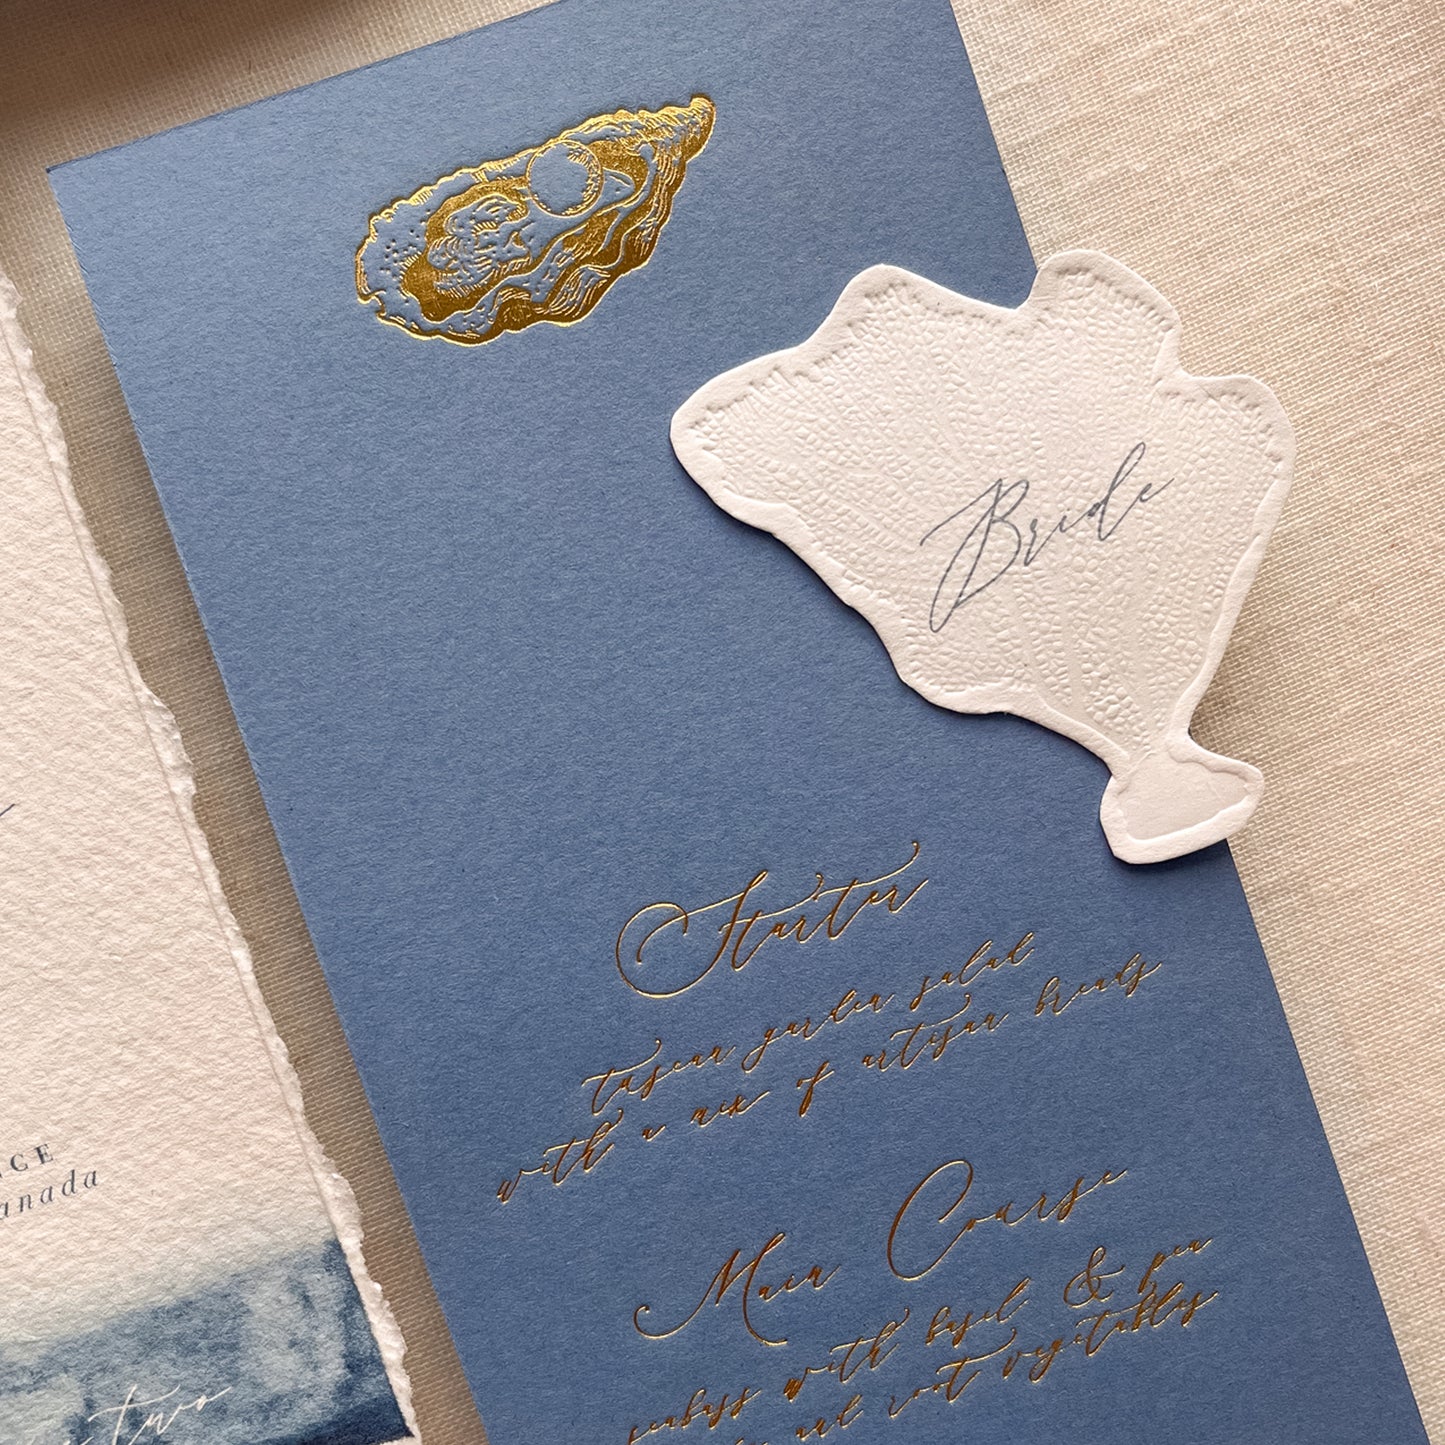 Bride
Starter
tuscan garden salad
with a mix of artisan breads
Main Course
seabass with basil & pea
and root vegetables
anada
two